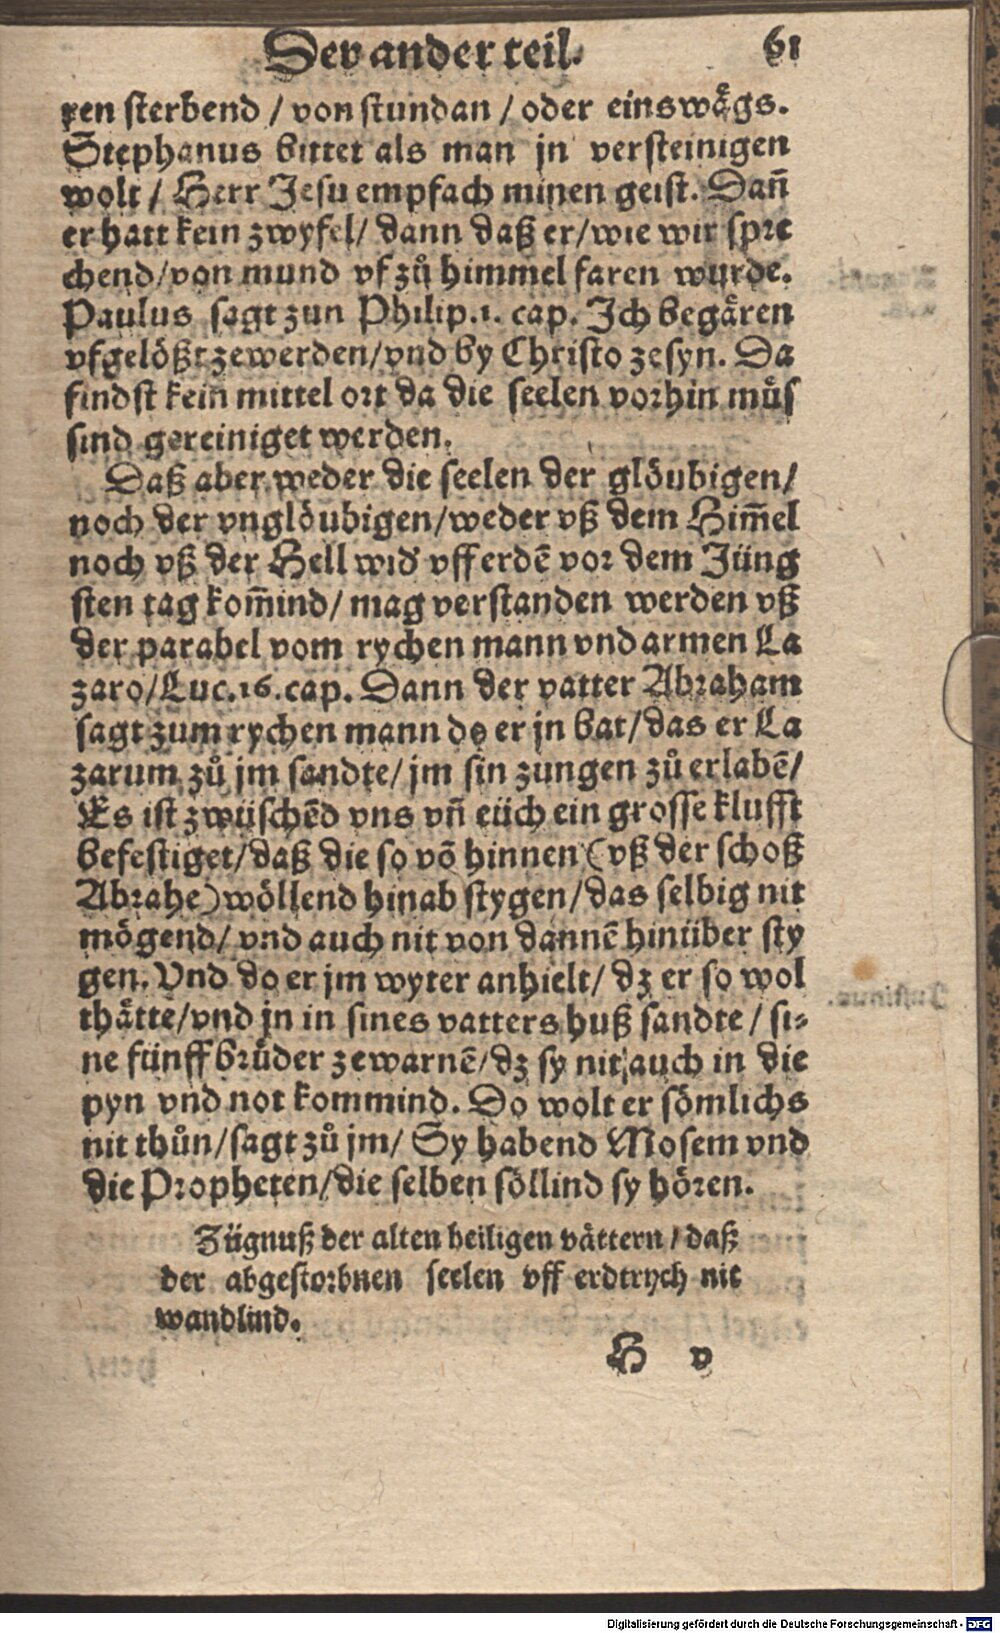 Der ander teil. 61
ren sterbend / von stundan / oder einswågs.
Stephanus bittet als man jn versteinigen
wolt / Herr Jesu empfach minen geist. Dañ
er hatt kein zwyfel / dann daß er / wie wir spre
chend / von mund vf zů himmel faren wurde.
Paulus sagt zun Philip. 1. cap. Ich begåren
vfgelößt zewerden / vnd by Christo zesyn. Da
findst kein mittel ort da die seelen vorhin můs
sind gereiniget werden.
Daß aber weder die seelen der glöubigen /
noch der vnglöubigen / weder vß dem Him̃el
noch vß der Hell wid' vff erdẽ vor dem Jüng
sten tag kom̃ind / mag verstanden werden vß
der parabel vom rychen mann vnd armen La
zaro / Luc. 16. cap. Dann der vatter Abraham
sagt zum rychen mann do er jn bat / das er La
zarum zů jm sandte / jm sin zungen zů erlabẽ /
Es ist zwüschẽd vns vñ eüch ein grosse klufft
befestiget / daß die so võ hinnen (vß der schoß
Abrahe) wöllend hinab stygen / das selbig nit
mögend / vnd auch nit von dannẽ hinüber sty
gen. Vnd do er jm wyter anhielt / dz er so wol
thåtte / vnd jn in sines vatters huß sandte / si⸗
ne fünff brůder zewarnẽ / dz sy nit auch in die
pyn vnd not kommind. Do wolt er sömlichs
nit thůn / sagt zů jm / Sy habend Mosem vnd
die Propheten / die selben söllind sy hören.
Zügnuß der alten heiligen våttern / daß
der abgestorbnen seelen vff erdtrych nit
wandlind.
H v
Digitalisierung gefördert durch die Deutsche Forschungsgemeinschaft - DFG